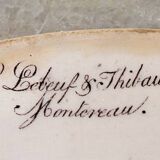 Lebeuf & Thibau
Montereau.